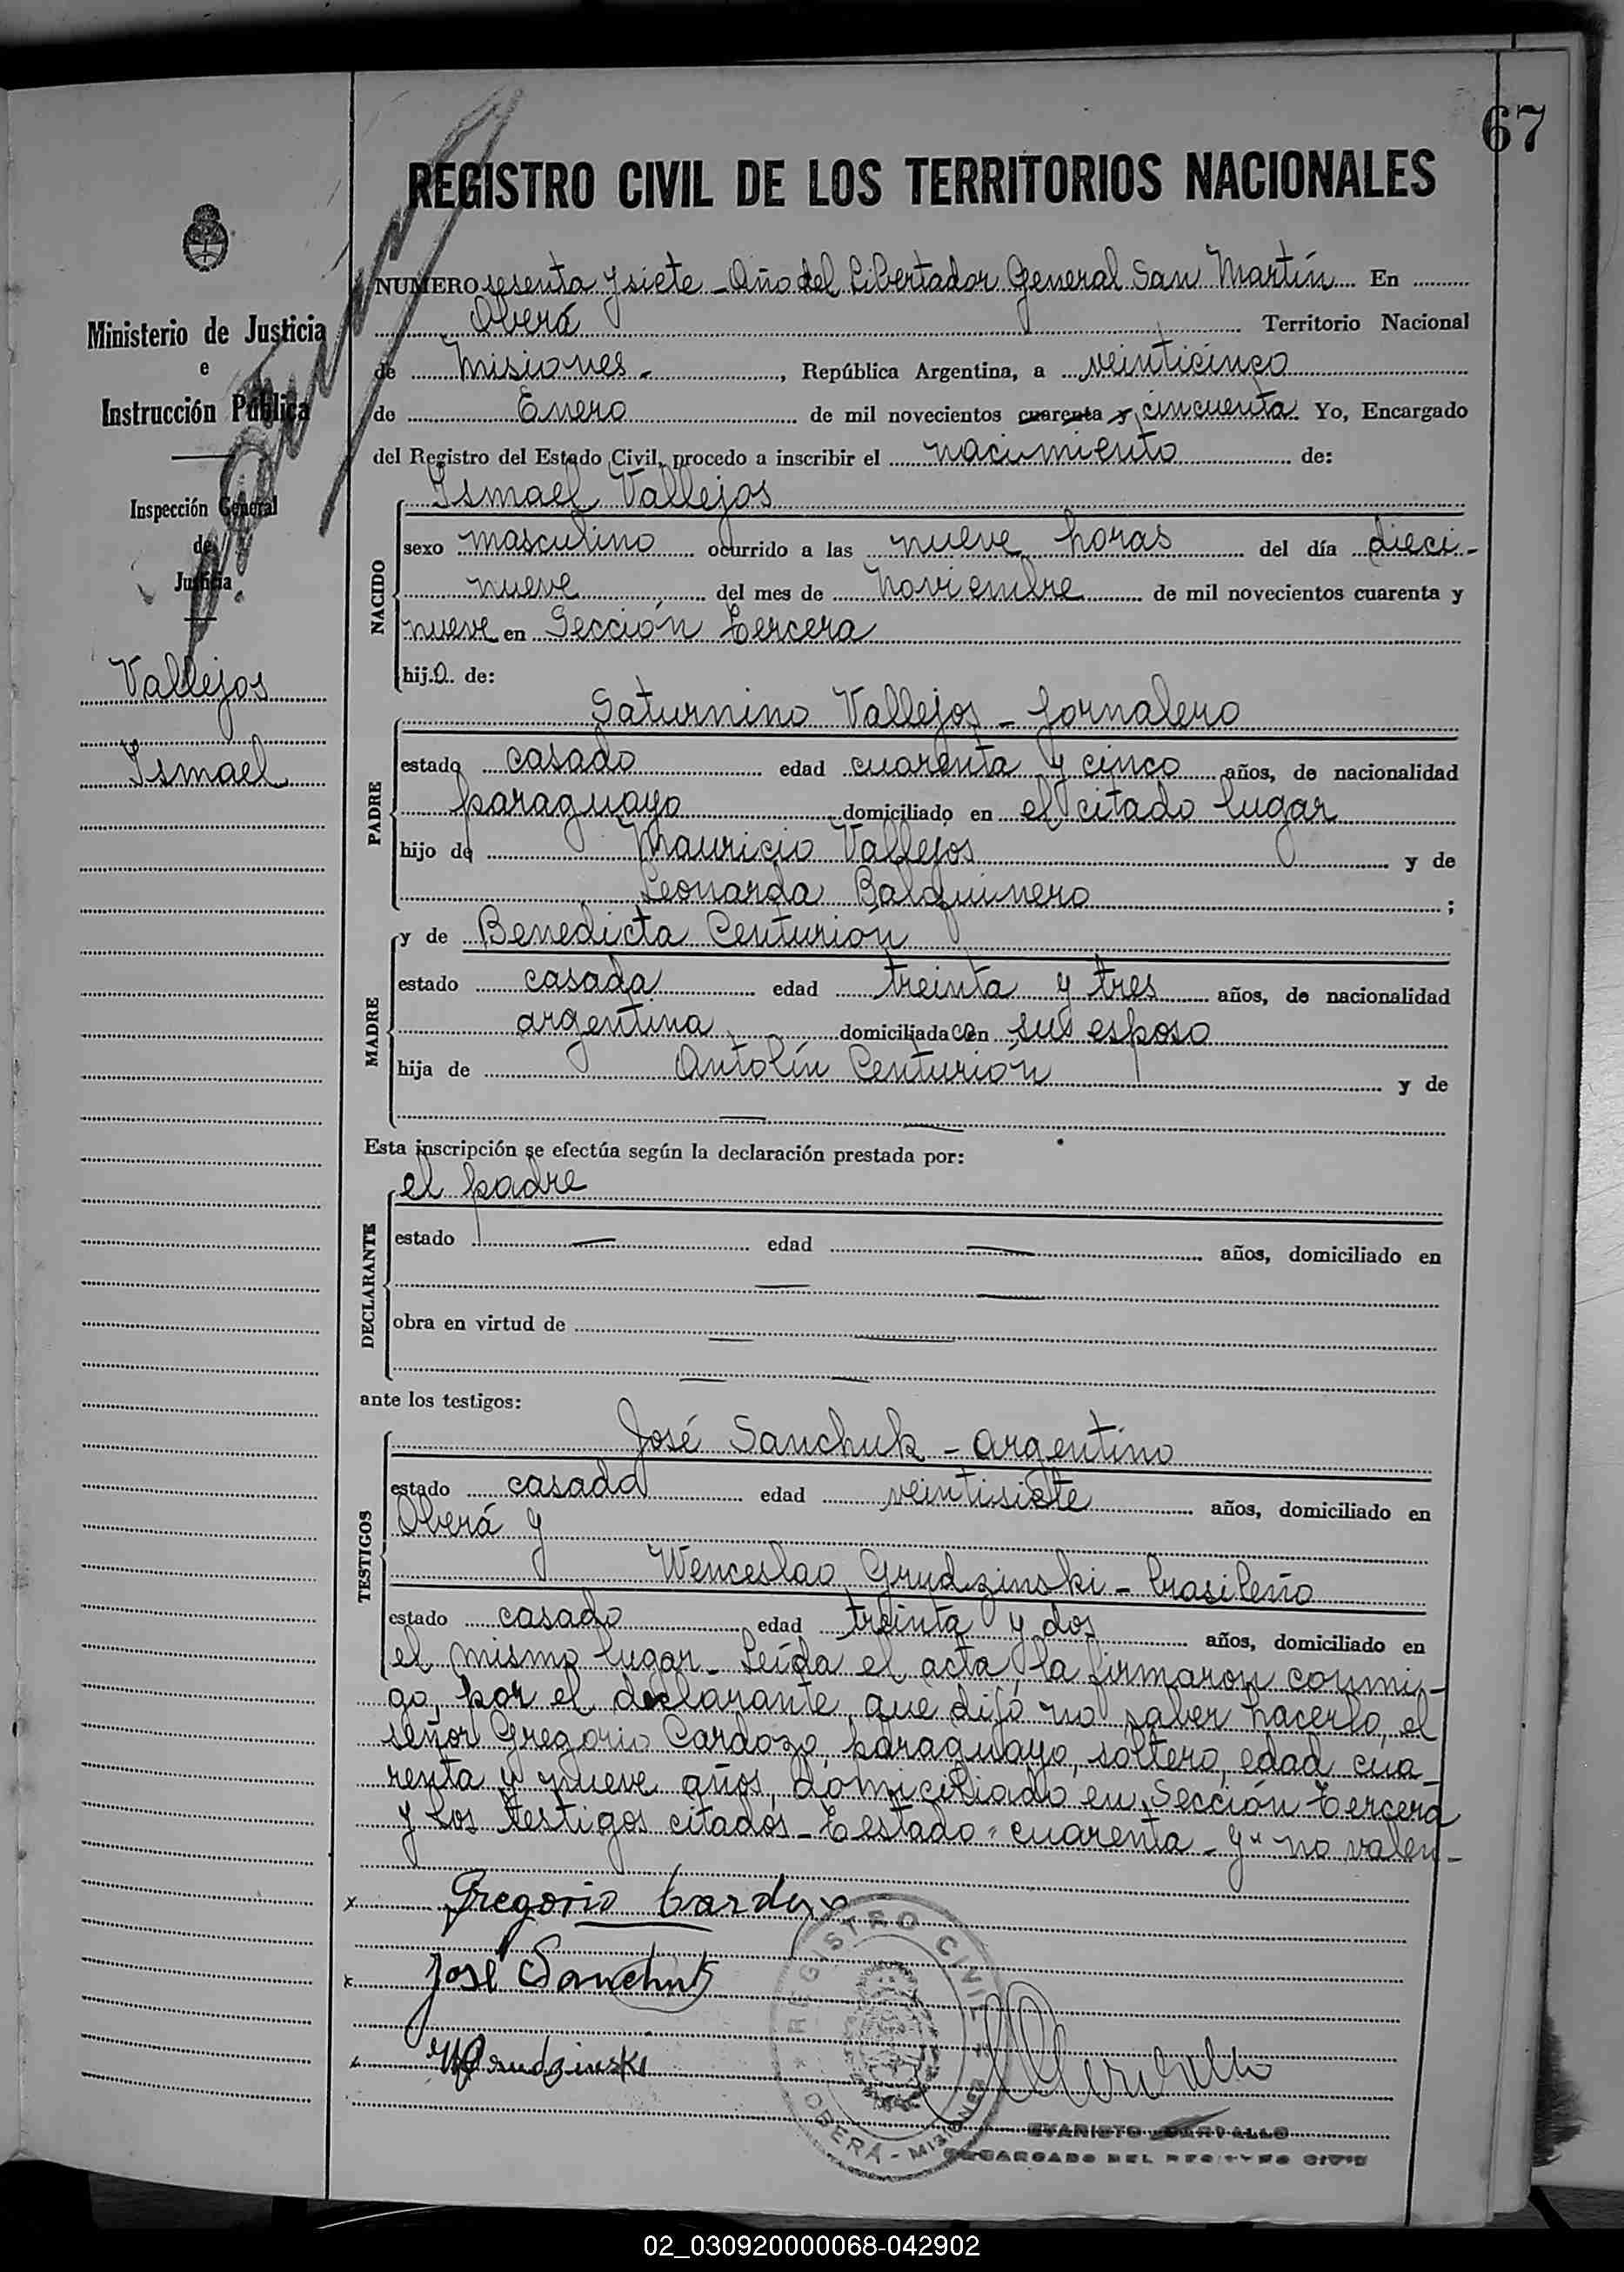 67
REGISTRO CIVIL DE LOS TERRITORIOS NACIONALES
Ministerio de Justicia
e
Instrucción Pública
Inspección General
de
Justicia
Vallejos
Ismael
NUMERO sesenta y siete - Año del Libertador General San Martín En
Oberá Territorio Nacional
de Misiones.- , República Argentina, a veinticinco
de Enero de mil novecientos cuarenta y cincuenta Yo, Encargado
del Registro del Estado Civil, procedo a inscribir el nacimiento de:
NACIDO
Ismael Vallejos
sexo masculino ocurrido a las nueve horas del día dieci-
nueve del mes de Noviembre de mil novecientos cuarenta y
nueve en Sección Tercera
hijo de:
PADRE
Saturnino Vallejos - Jornalero
estado casado edad cuarenta y cinco años, de nacionalidad
paraguayo domiciliado en el citado lugar
hijo de Mauricio Vallejos y de
Leonarda Balquinero ;
MADRE
y de Benedicta Centurión
estado casada edad treinta y tres años, de nacionalidad
argentina domiciliada con su esposo
hija de Antolín Centurión y de
Esta inscripción se efectúa según la declaración prestada por:
DECLARANTE
el padre
estado — edad — años, domiciliado en
obra en virtud de
ante los testigos:
TESTIGOS
José Sanchuk - argentino
estado casado edad veintisiete años, domiciliado en
Oberá y
Wenceslao Grudzinski - brasileño
estado casado edad treinta y dos años, domiciliado en
el mismo lugar - Leída el acta, la firmaron conmi-
go, por el declarante que dijó no saber hacerlo, el
señor Gregorio Cardozo, paraguayo, soltero, edad cua-
renta y nueve años, domiciliado en Sección Tercera
y los testigos citados - Testado "cuarenta - y" no valen -
x Gregorio Cardozo
x José Sanchuk
x WGrudzinski
REGISTRO CIVIL
OBERÁ - MISIONES
EVARISTO CERVALLO
ENCARGADO DEL REGISTRO CIVIL
02_030920000068-042902